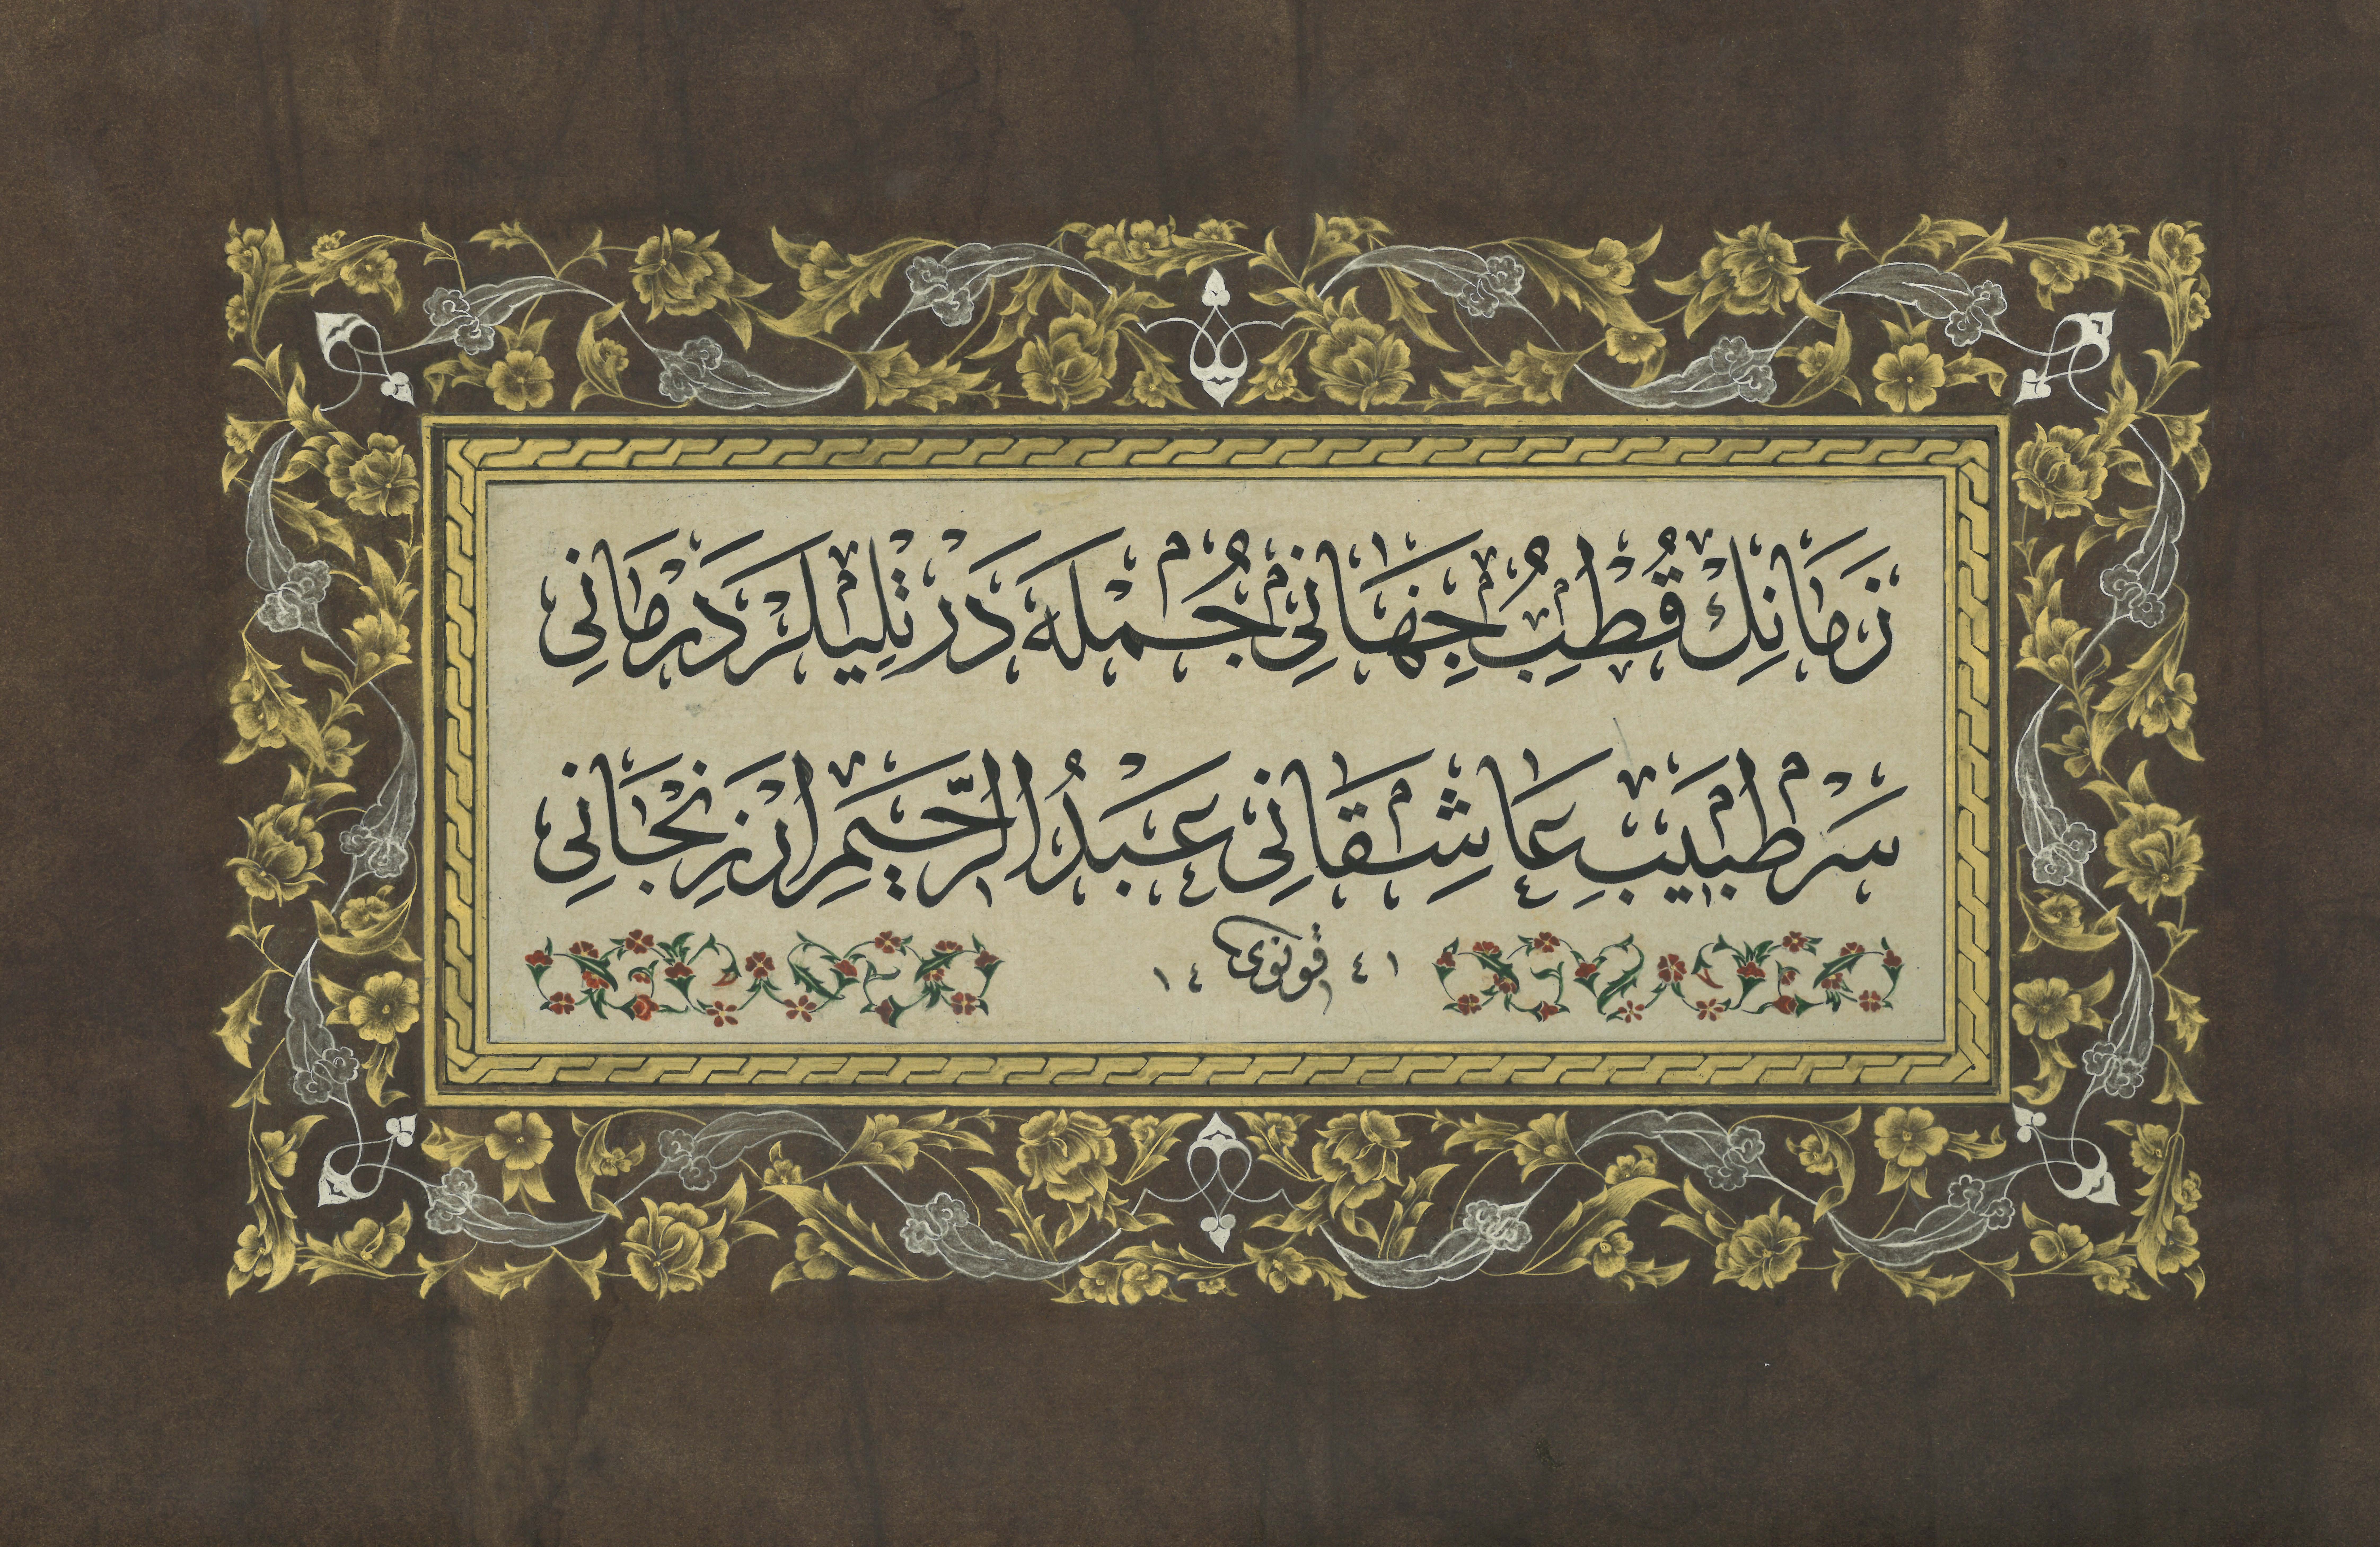 زَمَانِڭ قُطْبُ جِهَانِي جُمْلَه دَرْتْلِيلَرْ دَرْمَانِي
سَرْ طَبِيبِ عَاشِقَانِي عَبْدُ الرَّحِيمِ اَرْزِنْجَانِي
١٤ قونوى ٤١